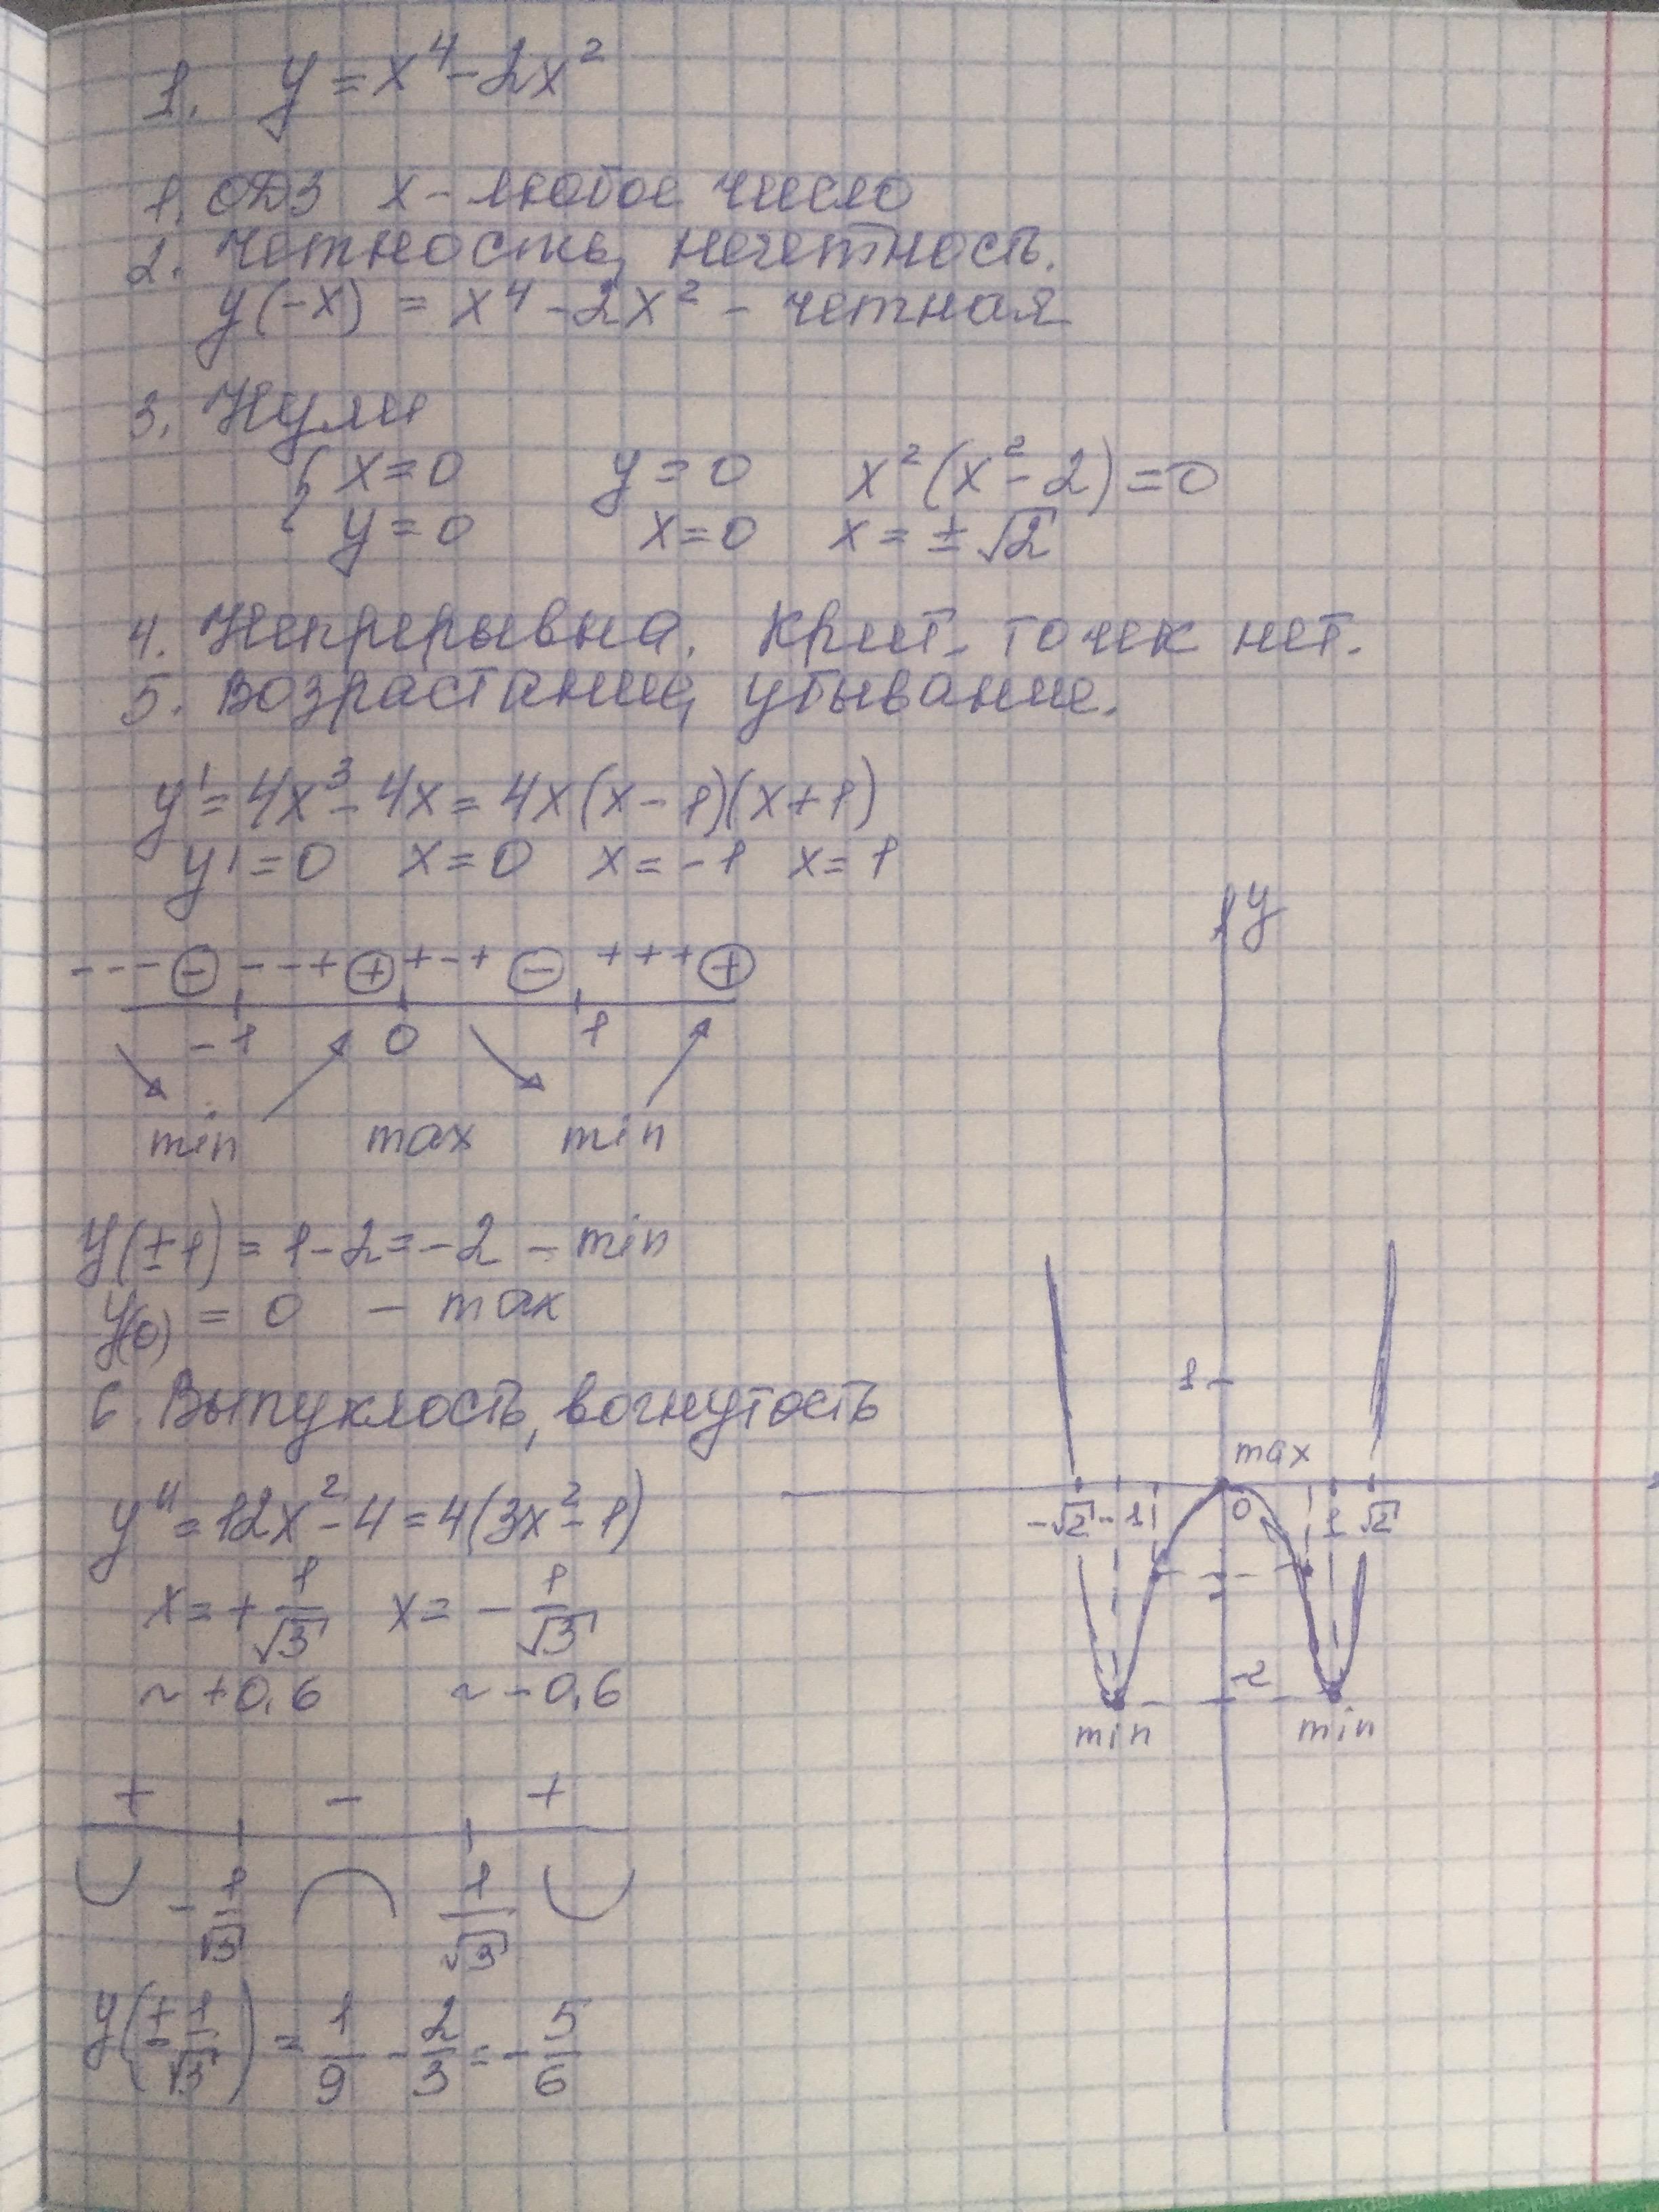 1. y = x⁴ - 2x²
1. ОДЗ x - любое число
2. Четность, нечетность.
y(-x) = x⁴ - 2x² - четная
3. Нули
{ x = 0    y = 0    x²(x² - 2) = 0
{ y = 0    x = 0    x = ± √2
4. Непрерывна. Крит. точек нет.
5. Возрастание, убывание.
y' = 4x³ - 4x = 4x(x - 1)(x + 1)
y' = 0    x = 0    x = -1    x = 1
- - - ⊖ - - + ⊕ + - + ⊖ + + + ⊕
-1    0    1
min    max    min
y(±1) = 1 - 2 = -2 - min
y(0) = 0 - max
6. Выпуклость, вогнутость
y'' = 12x² - 4 = 4(3x² - 1)
x = + 1/√3    x = - 1/√3
~ +0,6    ~ -0,6
+    -    +
- 1/√3    1/√3
y(± 1/√3) = 1/9 - 2/3 = - 5/6
y
1
max
-√2    -1    0    1    √2
-2
min    min